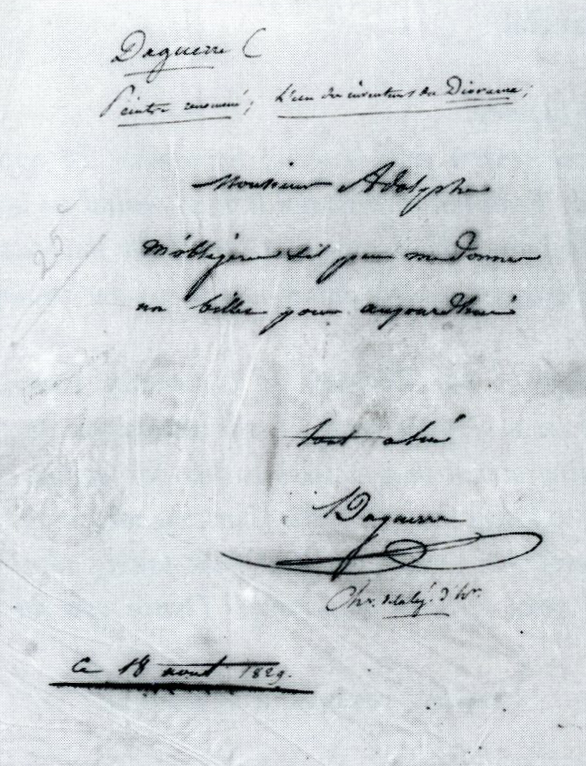 Daguerre (
Peintre renommé; L'un des inventeurs du Diorama;
Monsieur Adolphe
m'obligera s'il peut me donner
un billet pour aujourd'hui
tout à lui
Daguerre
Chr. de la lég. d'hr.
ce 18 aout 1829.
25